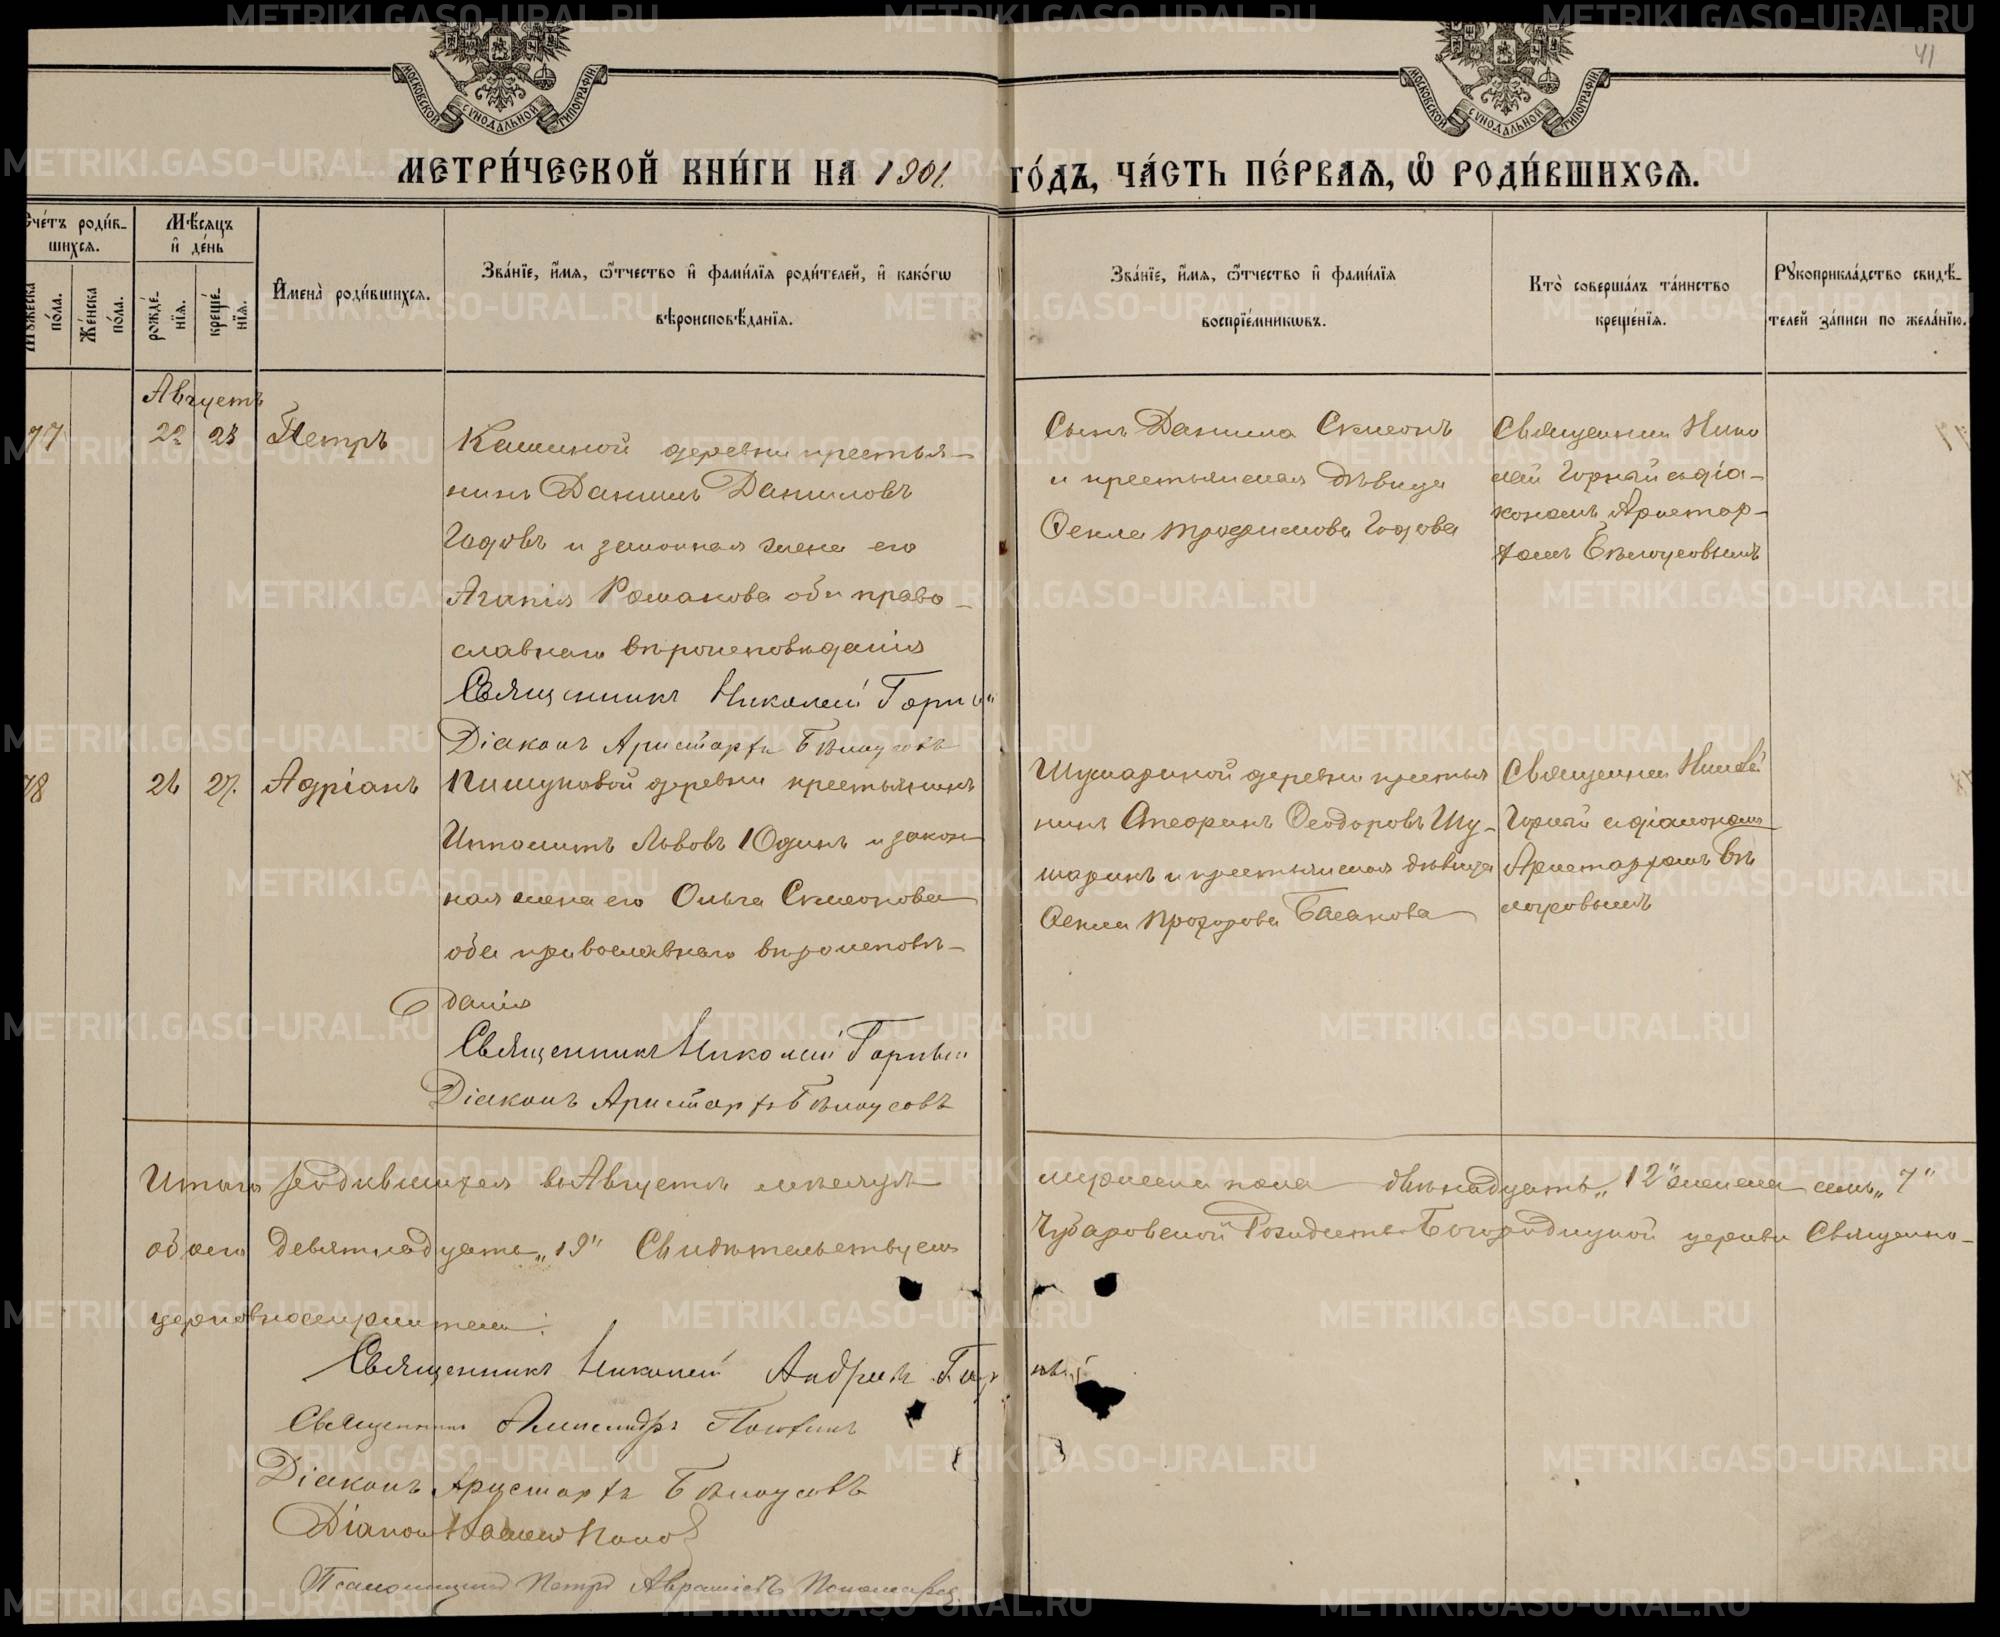 41
МОСКОВСКОЙ СѴНОДАЛЬНОЙ ТИПОГРАФІИ.
МОСКОВСКОЙ СѴНОДАЛЬНОЙ ТИПОГРАФІИ.
МЕТРИ́ЧЕСКОЙ КНИ́ГИ НА 1901. ГО́ДЪ, ЧА́СТЬ ПЕ́РВАѦ, Ѡ҆ РОДИ́ВШИХСѦ.
Сче́тъ роди́в-
шихсѧ.
Мꙋжеска по́ла.
Же́нска по́ла.
Мѣ́сѧцъ
и҆ де́нь
рожде́-
нїѧ.
креще́-
нїѧ.
И҆мена̀ роди́вшихсѧ.
Зва́нїе, и҆́мѧ, ѻ҆́тчество и҆ фами́лїѧ роди́телей, и҆ како́гѡ
вѣроисповѣ́данїѧ.
Зва́нїе, и҆́мѧ, ѻ҆́тчество и҆ фами́лїѧ
воспрїе́мникѡвъ.
Кто̀ соверша́лъ та́инство
креще́нїѧ.
Рꙋкоприкла́дство свидѣ́-
телей за́писи по жела́нїю.
Августъ
77
22 23 Петръ
Кашиной деревни крестья-
нинъ Даниилъ Даниловъ
Гадовъ и законная жена его
Агапія Романова оба право-
славнаго вѣроисповѣданія
Священникъ Николай Горный
Діаконъ Аристархъ Бѣлоусовъ
Сынъ Данила Симеонъ
и крестьянская дѣвица
Ѳекла Трофимова Гадова
Священник Нико
лай Горный съ діа-
кономъ Аристар-
хомъ Бѣлоусовымъ
78
26 27. Адріанъ
Пишуковой деревни крестьянинъ
Ипполитъ Львовъ Юдинъ и закон
ная жена его Ольга Симеонова
оба православнаго вѣроисповѣ-
данія
Священникъ Николай Горный
Діаконъ Аристархъ Бѣлоусовъ
Шумариной деревни крестья
нинъ Ѳеодоровъ Шу-
маринъ и крестьянская дѣвица
Ѳекла Прохорова
Священник Николай
Горный съ діакономъ
Аристархомъ Бѣ
лоусовымъ
Итого родившихся въ Августѣ мѣсяцѣ мужеска пола двѣнадцать „12" женска семь „7"
обоего девятнадцать „19" Свидѣтельствуемъ Чубаровской Рождество-Богородицкой церкви Священно-
церковнослужители:
Священникъ Николай Андреевъ Горный
Священникъ Александръ
Діаконъ Аристархъ Бѣлоусовъ
Діаконъ Попов
Псаломщикъ Петръ Пономаревъ
METRIKI.GASO-URAL.RU